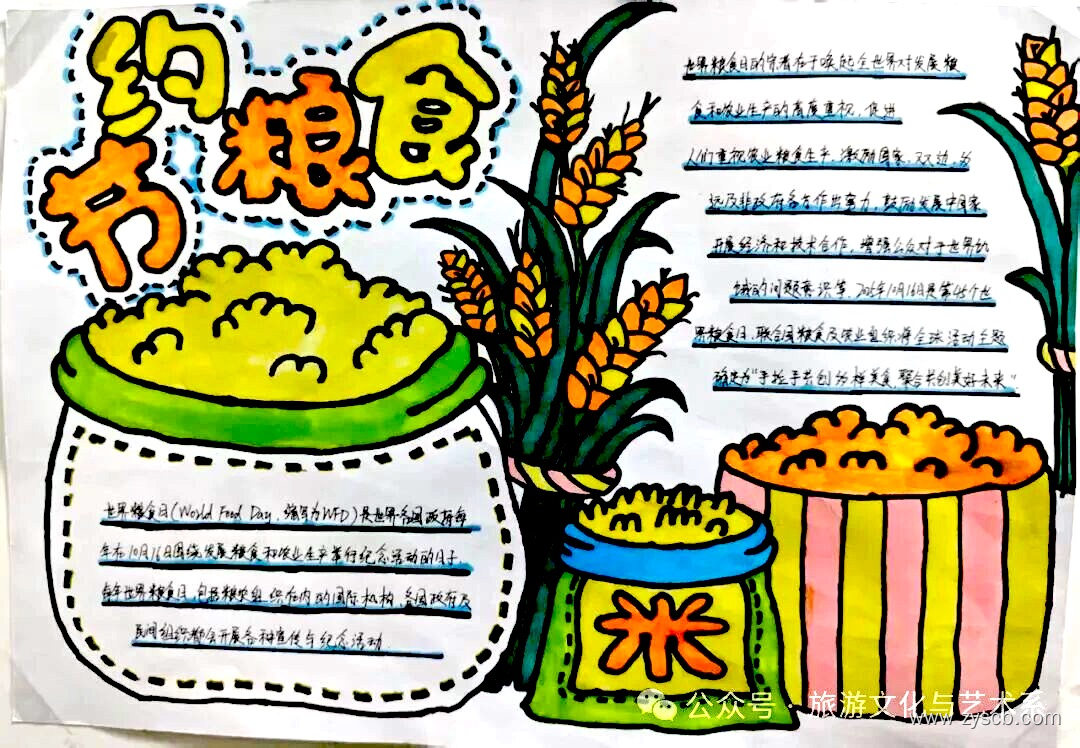 节约粮食
世界粮食日的宗旨在于唤起全世界对发展粮
食和农业生产的高度重视，促进
人们重视农业粮食生产，激励国家、双边、多
边及非政府各方作出努力，鼓励发展中国家
开展经济和技术合作，增强公众对于世界饥
饿的问题意识等，2025年10月16日是第45个世
界粮食日，联合国粮食及农业组织将全球活动主题
确定为“手拉手共创 粮美食 聚合共创美好未来”
世界粮食日（World Food Day，缩写为WFD）是世界各国政府每
年在10月16日围绕发展粮食和农业生产举行纪念活动的日子，
每年世界粮食日，包括粮农组织在内的国际机构，各国政府及
民间组织都会开展各种宣传与纪念活动
米
公众号·旅游文化与艺术系
www.zyscb.com